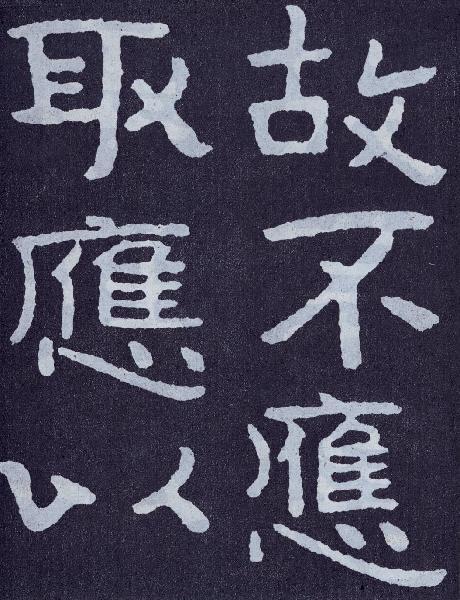 故不應
取應以